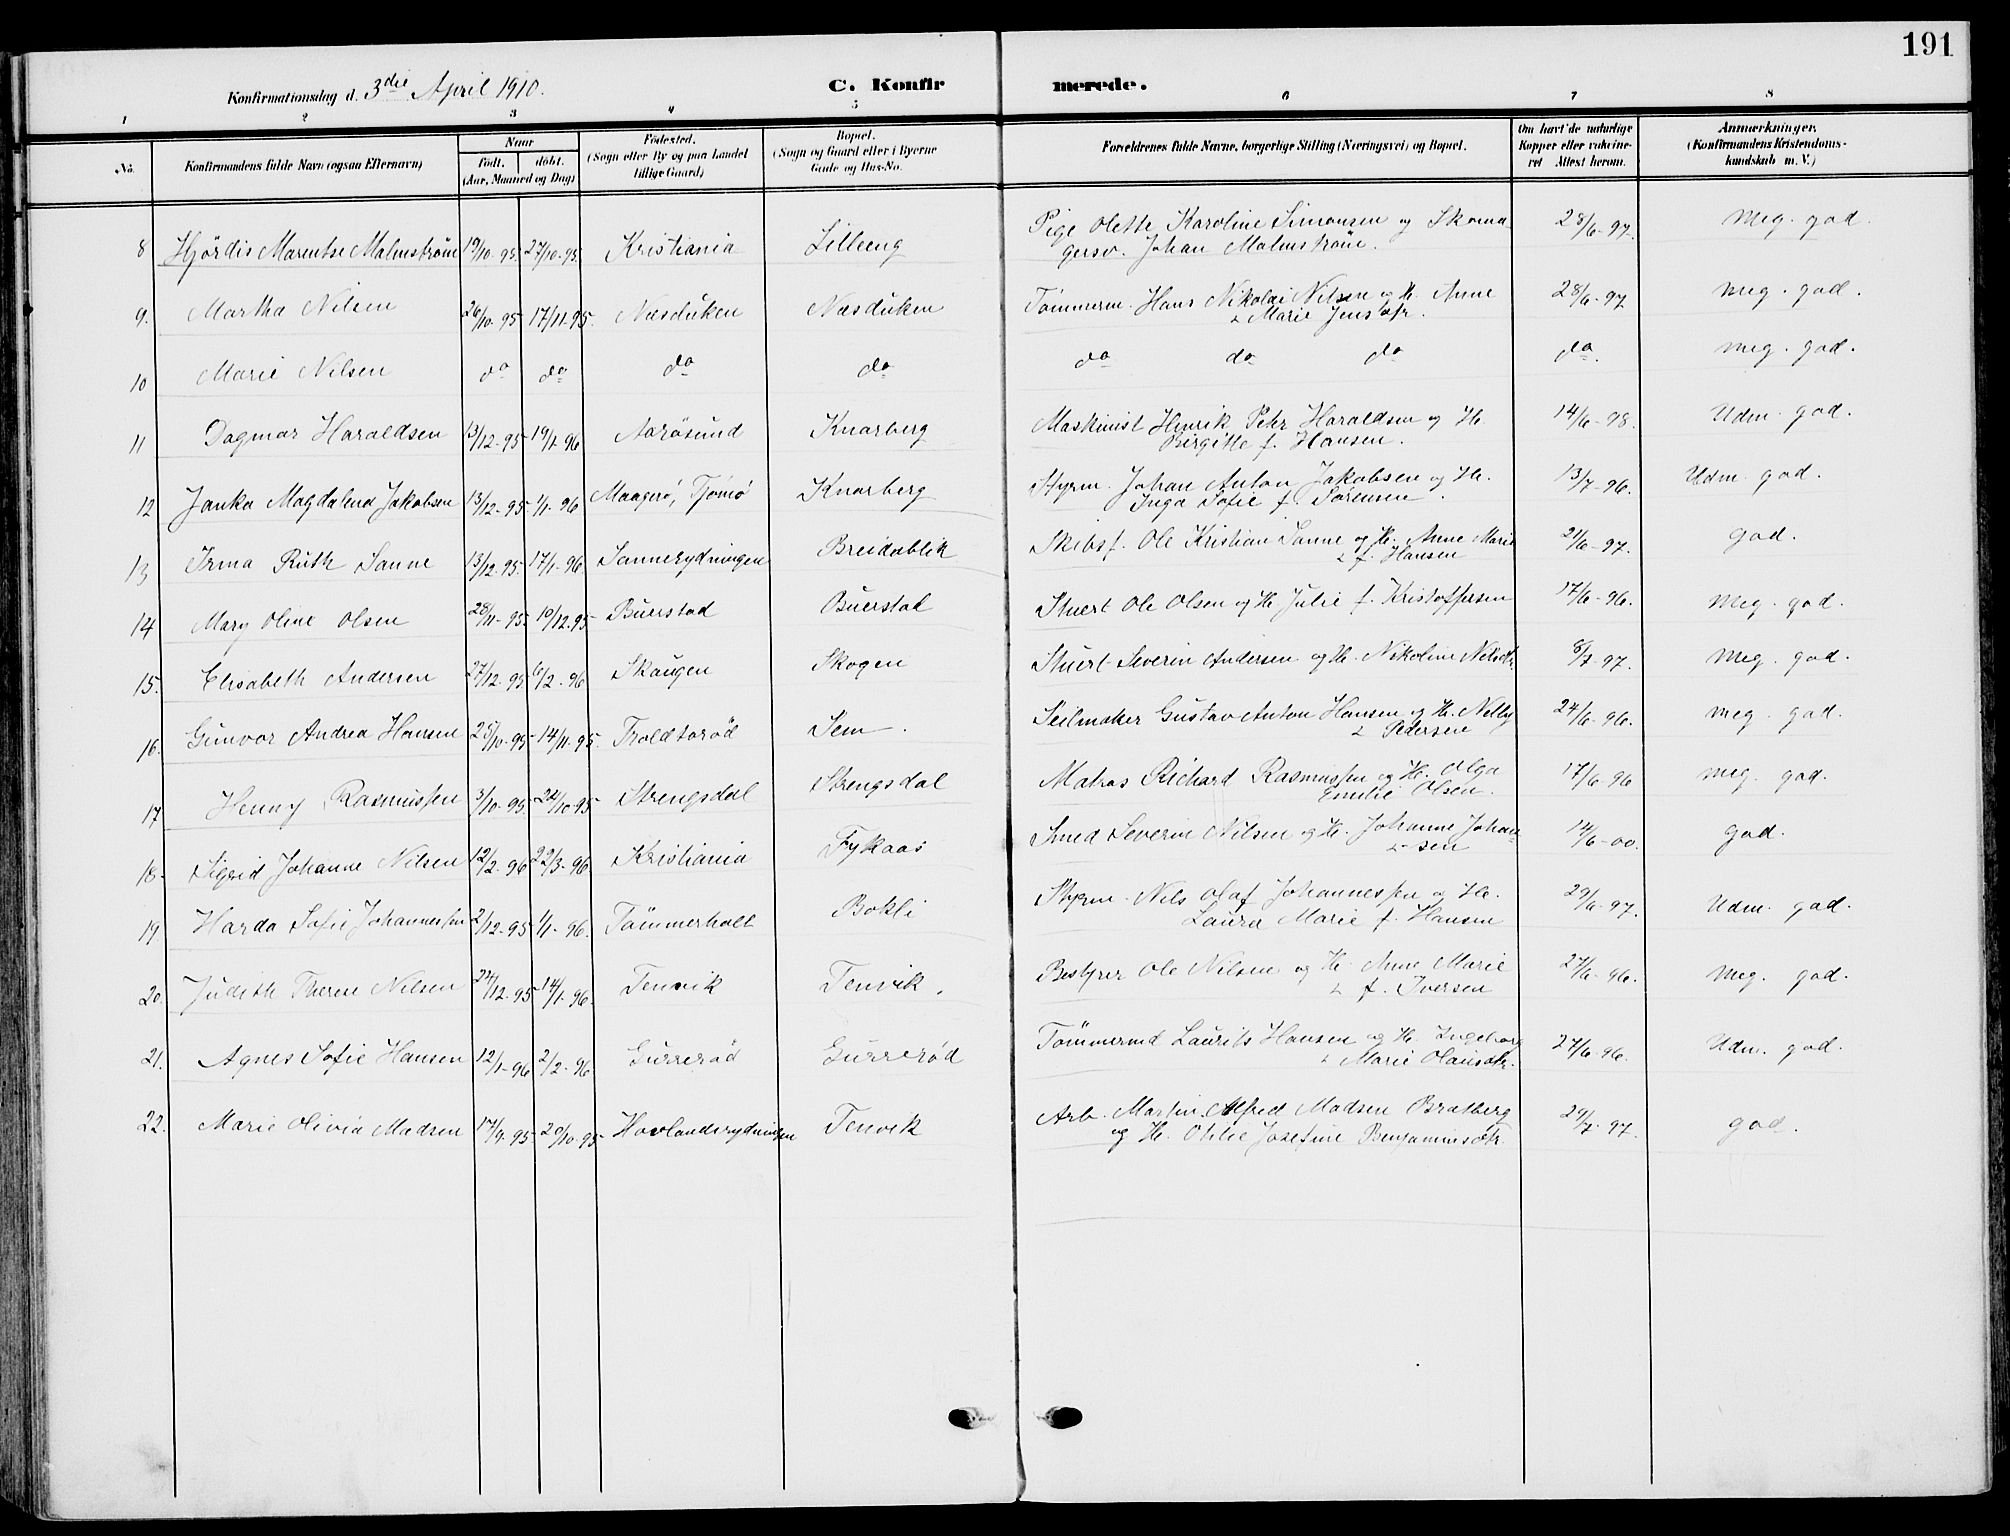 191
Konfirmationsdag d. 3die April 1910.
C. Konfirmerede.
1 2 3 4 5 6 7 8
No. Konfirmandens fulde Navn (ogsaa Efternavn) Naar født. døbt. (Aar, Maaned og Dag) Fødested. (Sogn eller By og paa Landet tillige Gaard) Bopæl. (Sogn og Gaard eller i Byerne Gade og Hus-No. Forældrenes fulde Navne, borgerlige Stilling (Næringsvei) og Bopæl. Om havt de naturlige Kopper eller vakcineret Attest herom. Anmærkninger. (Konfirmandens Kristendomskundskab m. V.)
8 Hjördis Marentse Malmstrøm 19/10-95. 27/10-95. Kristiania Lilleeng Pige Olette Karoline Simonsen og Skoma
gersv. Johan Malmstrøm. 28/6-97. Meg. god.
9. Martha Nilsen 26/10-95 17/11-95. Næsduken Næsduken Tömmerm. Hans Nikolai Nilsen og H. Anne
Marie Jensdtr. 28/6-97 Meg. god.
10 Marie Nilsen do do do do do do do do. Meg. god.
11 Dagmar Haraldsen 13/12-95 19/1-96 Aarøsund Knarberg Maskinist Henrik Petr Haraldsen og H.
Birgitte f. Hansen. 14/6-98. Udm. god.
12 Janka Magdalena Jakobsen 13/12-95 1/1-96 Maagerø, Tjømø Knarberg Styrm. Johan Anton Jakobsen og H.
Inga Sofie f. Sørensen. 13/7-96. Udm. god.
13 Irma Ruth Sanne 13/12-95. 17/1-96 Sannerydningen Breidablik Skibsf. Ole Kristian Sanne og H. Anne Marie
f. Hansen 21/6-97. god.
14 Mary Oline Olsen 28/11-95. 10/12.95 Buerstad Buerstad Stuert Ole Olsen og H. Julie f. Kristoffersen 17/6-96. Meg. god.
15. Elisabeth Andersen 27/12-95 6/2-96 Skaugen Skogen Stuert Severin Andersen og H. Nikoline Nilsdtr. 8/7-97. Meg. god.
16. Gunvor Andrea Hansen 25/10-95 14/11-95. Troldtorød Sem. Seilmaker Gustav Anton Hansen og H. Nelly
Pedersen 24/6-96. Meg. god.
17 Henny Rasmussen 3/10-95. 24/10-95 Strengsdal Strengsdal Matros Richard Rasmussen og H. Olga
Emilie Olsen. 17/6-96 Meg. god.
18. Sigrid Johanne Nilsen 12/2-96 22/3-96. Kristiania Fykaas Smed Severin Nilsen og H. Johanne Johan
sen 14/6-00. god.
19 Harda Sofie Johannessen 2/12-95 1/1-96. Tömmerholt Bokli Styrm. Nils Olaf Johannessen og H.
Laura Marie f. Hansen 29/6-97. Udm. god.
20. Judith Therese Nilsen 24/12-95 14/1-96. Tenvik Tenvik. Bestyrer Ole Nilsen og H. Anne Marie
f. Iversen 27/6-96. Meg. god.
21. Agnes Sofie Hansen 12/1-96 2/2-96 Gurrerød Gurrerød Tömmermd Laurits Hansen og H. Ingeborg
Marie Olausdtr. 27/6-96. Udm. god.
22. Marie Olivia Madsen 17/9-95 20/10-95 Hovlandsrydningen Tenvik Arb. Martin Alfred Madsen Bratberg
og H. Otilie Josefine Benjaminsdtr. 29/7-97. god.